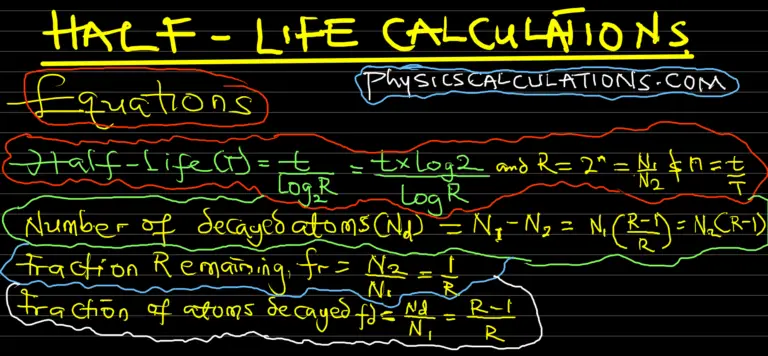 HALF-LIFE CALCULATIONS
PHYSICSCALCULATIONS.COM
Equations
Half-Life(T) = t/Log₂R = t×log2/LogR and R = 2ⁿ = N₁/N₂ & n = t/T
Number of decayed atoms(Nd) = N₁-N₂ = N₁(R-1/R) = N₂(R-1)
Fraction Remaining, fr = N₂/N₁ = 1/R
Fraction of atoms decayed fd = Nd/N₁ = R-1/R